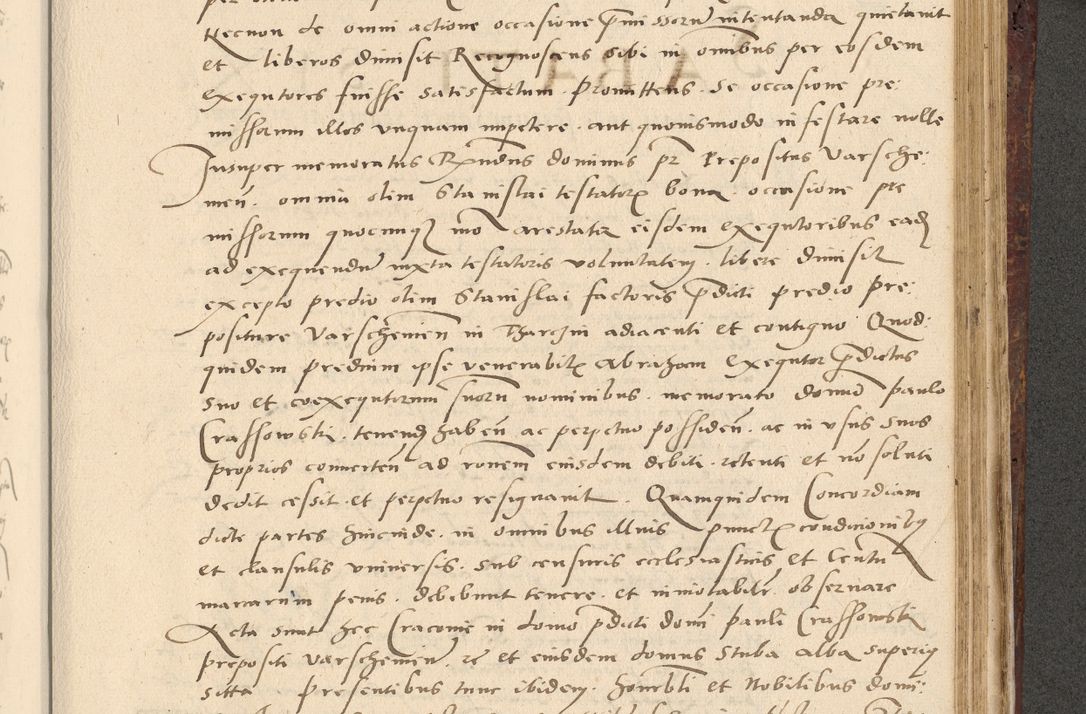 Necnon de omni actione occasione p̄missorū intentanda quietavit
et liberos dimisit Recognoscens sibi in om̄ibus per eosdem
Exequtores fuisse satisfactum. Promittens. se occasione pre:
missorum illos unquam impetere. aut quovismodo infestare nolle
Insuper memoratus Rn̄dus dominus pr̄ Prepositus Varsche:
men̄. omnia olim Stanislai testatoris bona. occasione pre
missorum quocumq̄ mo arestata eisdem Exequtoribus ead̄
ad exequendū iuxta testatoris voluntatem. libere dimisit
excepto predio olim Stanislai factoris p̄dicti predio pre:
positure Varschemien̄ in Tharchin adiacenti et contiguo Quod:
quidem predium ipse venerabilis Abraham Exequtor p̄dictus
suo et coexequtorum suorū nominibus. memorato domino paulo
Crassowski. tenend̄ haben̄ ac perpetuo possiden̄. ac in usus suos
proprios converten̄ ad ronem eiusdem debiti. retenti et nō soluti
dedit cessit. et perpetuo resignavit. Quamquidem Concordiam
dicte partes hincinde. in omnibus illius punctis condicionibꝫ
et clausulis universis. sub censuris ecclesiasticis et Centū
marcarum penis. debebunt tenere. et inviolabilr̄. observare
Acta sunt hec Cracovie in domo p̄dicti domi pauli Crassowski
prepositi varschemien̄. re et eiusdem domus stuba alba superiꝫ
sitta presentibus tunc ibidem. honrbli et Nobilibus domi: